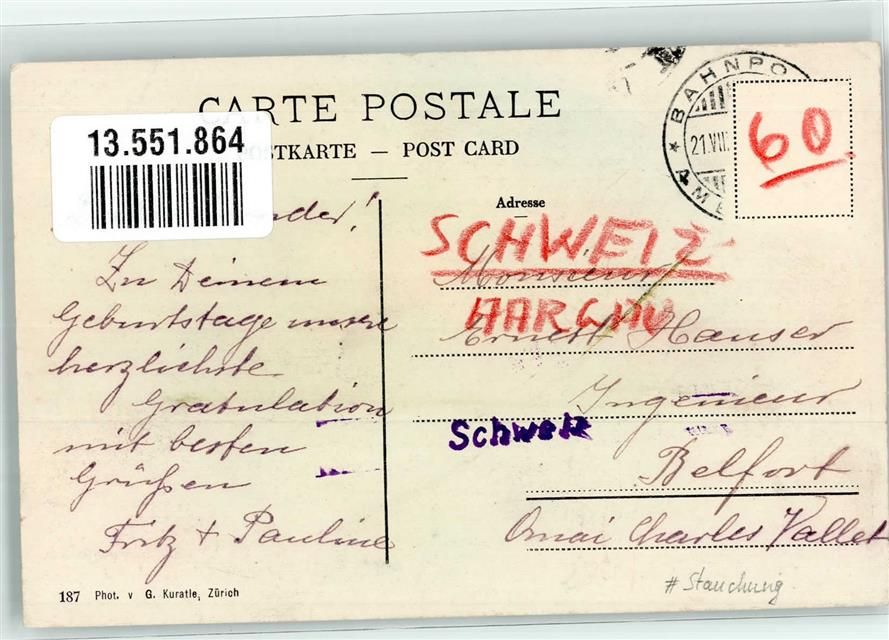 CARTE POSTALE
POSTKARTE — POST CARD
13.551.864
BAHNPO
21.VIII.
60
Adresse
SCHWEIZ
AARGAU
Zu Deinem
Geburtstage unsere
herzlichste
Gratulation
mit besten
Grüßen
Fritz + Pauline
Monsieur
Ernest Hauser
Ingenieur
Schweiz
Belfort
Charles Vallet
# Stauchung
187 Phot. v G. Kuratle, Zürich